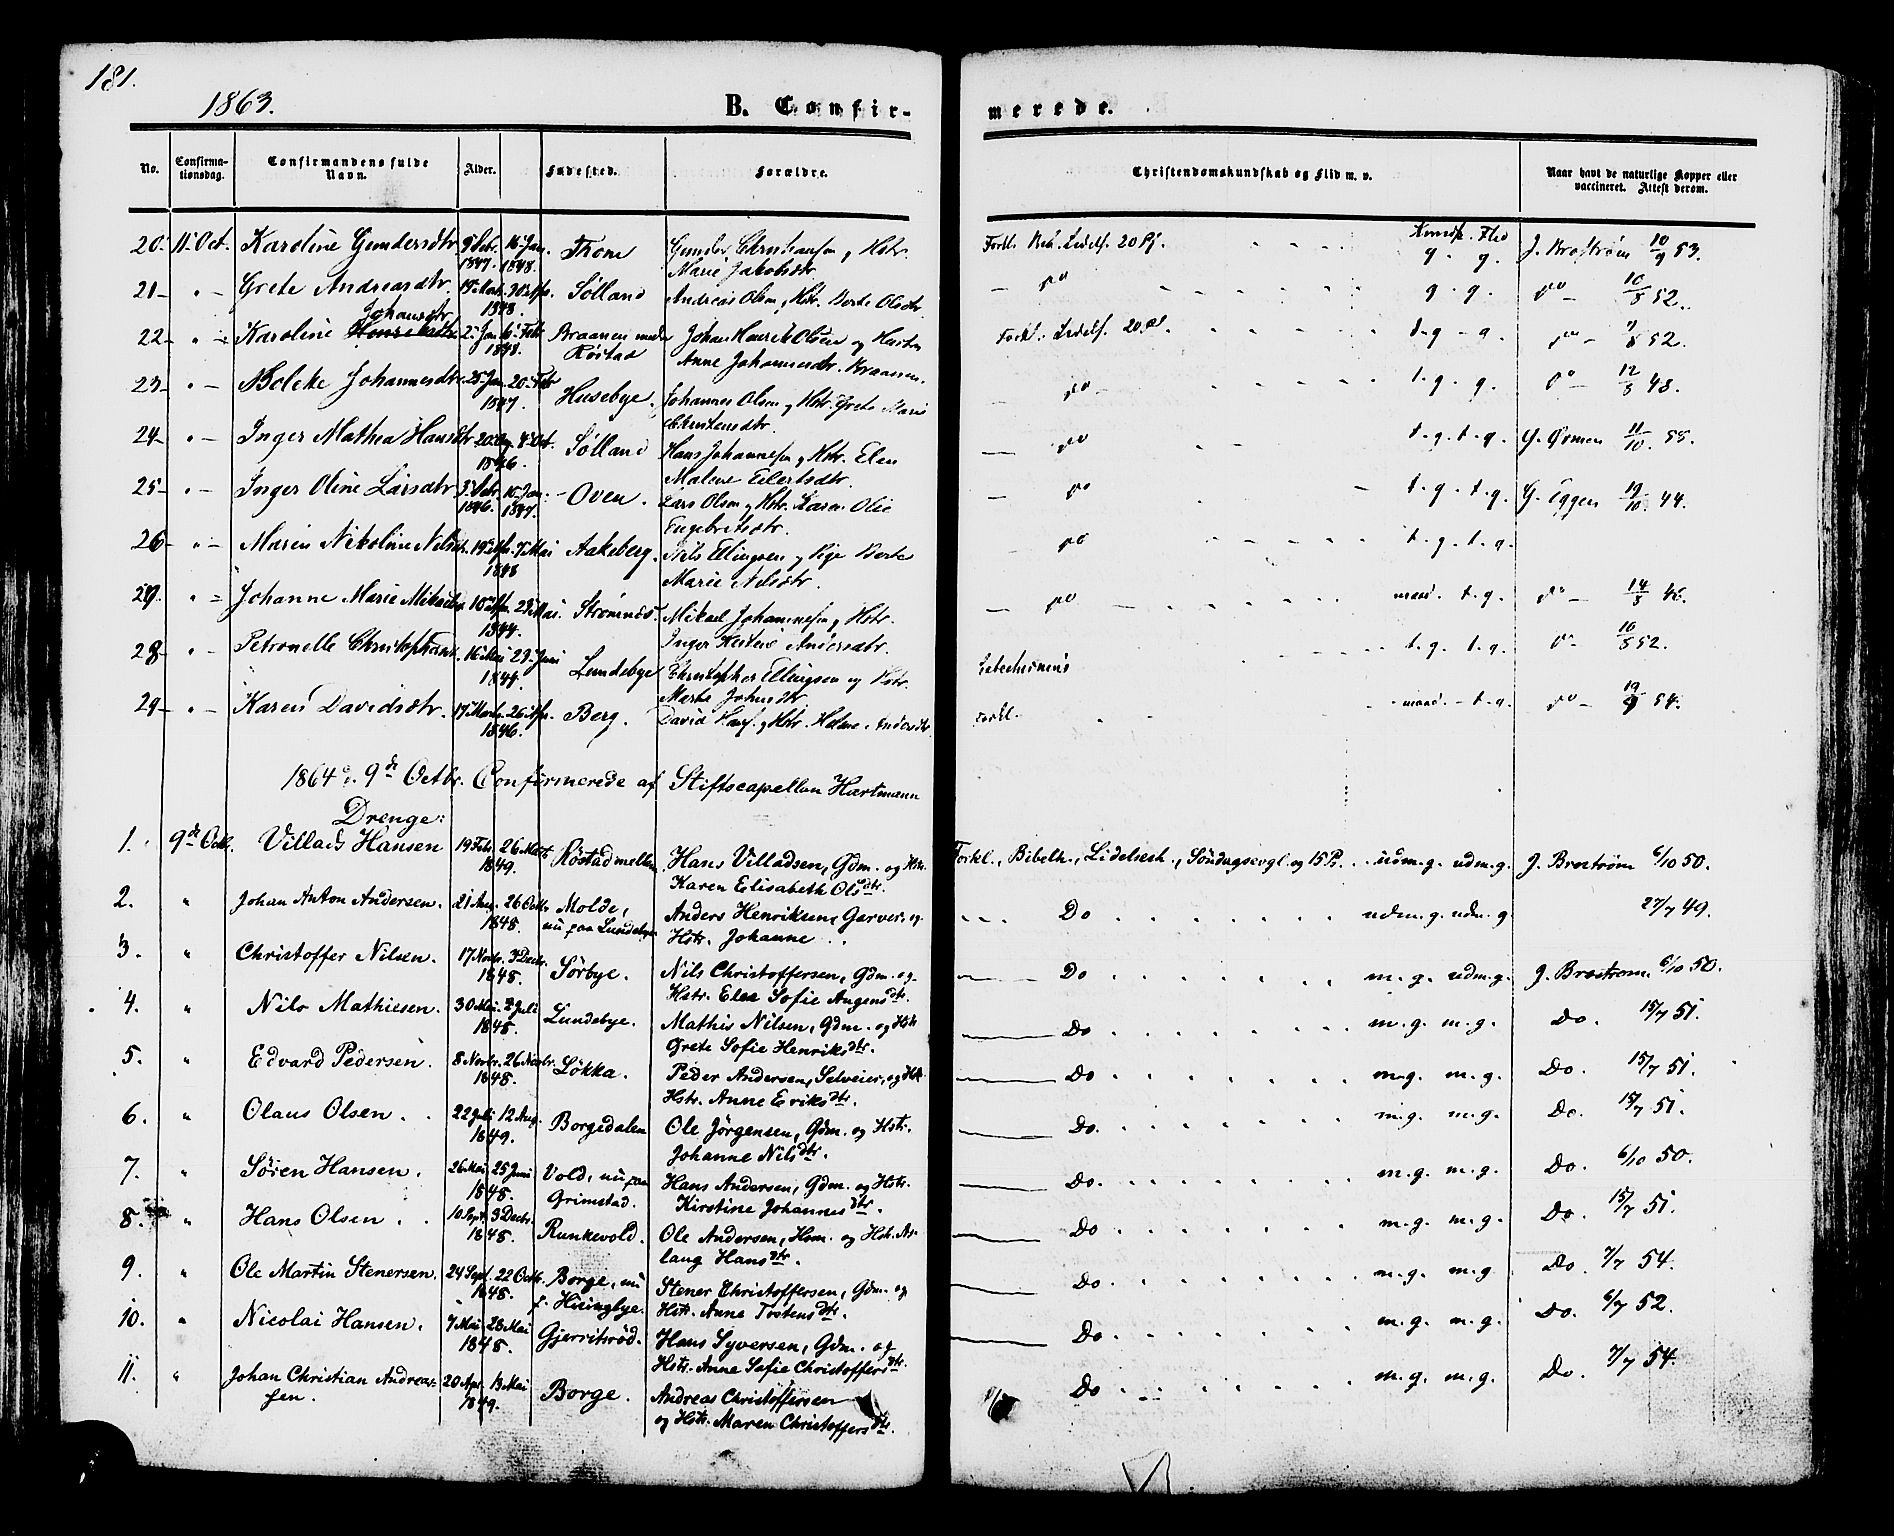 181.
1863. B. Confir- merede.
No. Confirma- tionsdag. Confirmandens fulde Navn. Alder. Fødested. Forældre. Christendomskundskab og Flid m. v. Naar havt de naturlige Kopper eller vaccineret. Attest derom.
20. 11. Oct. Karoline Gundersdtr. 1847. 16. Jan. 1848. Thom Gunder Christiansen og Hstr. Forkl. Lidelsh. 20 Ps. Kundsk. Flid g. g. J. Brostrøm 10/9 53.
Marie Jakobsdtr.
21 " Grete Andreasdtr. 1848. Sølland Andreas Olsen og Hstr. Berte Olsdtr. Do g. g. Do 52.
22 " Karoline Johansdtr. 2. Jan. 6. Febr. 1848. Braanen nedre Rostad Johan Henrik Olsen og Hustru Forkl. Lidelsh. 20 Ps. t. g. g. Do 52.
Anne Johannesdtr. Braanen.
23 " Boleke Johannesdtr. 25. Jan. 20. Febr. 1847. Husebye. Johannes Olsen og Hstr. Grete Marie Do t. g. g. Do 12/3 48.
Christensdtr.
24 " Inger Mathea Hansdtr. 1846. Sølland Hans Johannesen og Hstr. Elen Do t. g. t. g. G. Ormen 11/10 55.
Malene Eilertsdtr.
25 " Inger Oline Larsdtr. 1846. 10. Jan. 1847. Oven. Lars Olsen og Hstr. Karen Olie Do t. g. t. g. G. Eggen 19/10 44.
Engebretsdtr.
26 " Maren Nikoline Nilsdtr. 7. Mai 1848 Aakeberg. Nils Ellingsen og Pige Berte Do t. g. t. g.
Marie Nilsdtr.
" Johanne Marie Mikaelsdtr. Mai. 1847. Strømnes. Mikael Johannesen og Hstr. Do maad. t. g. Do 14/3 46.
Inger Kestine Andersdtr.
28 " Petronelle Christophersdtr. 16. Mai 29. Juni 1847. Lundebye Christopher Ellingsen og Hstr. t. g. t. g. Do 52.
Marte Johnsdtr.
29 " Karen Davidsdtr. 17. Marts. 26. Apr. 1846. Berg. David Hans. og Hstr. Helene Andersdtr. Forkl. maad. t. g. Do 54.
1864 d. 9de Octbr. Confirmerede af Stiftscapellan Hartmann
Drenge:
1. 9de Octb. Villads Hansen 19 Febr. 26 Marts 1849. Røstad mellem Hans Villadsen, Gdm. og Hstr. Forkl., Bibelh., Lidelsesh., Søndagsevgl. og 15 Ps. udm. g. udm. g. J. Brostrøm 6/10 50.
Karen Elisabeth Olsdtr.
2. " Johan Anton Andersen. 21 Aug. 26 Octbr. 1848. Molde, nu paa Lundebye Anders Henriksen, Garver, og Do udm. g. udm. g. 27/7 49.
Hstr. Johanne . .
3. " Christoffer Nilsen. 17 Novbr. 3 Decbr. 1848. Sørbye. Nils Christoffersen, Gdm. og Do m. g. udm. g. J. Brostrøm. 6/10 50.
Hstr. Else Sofie Augensdtr.
4. " Nils Mathiesen. 30 Mai. 2 Juli 1848. Lundebye. Mathis Nilsen, Gdm. og Hstr. Do m. g. m. g. Do. 15/7 51.
Grete Sofie Henriksdtr.
5. " Edvard Pedersen. 8 Novbr. 26 Novbr. 1848. Løkka. Peder Andersen, Selveier, og Hstr. Do m. g. m. g. Do. 15/7 51.
Hstr. Anne Eriksdtr.
6. " Olaus Olsen. 22 Juli 12 Aug. 1849. Borgedalen Ole Jörgensen, Gdm. og Hstr. Do. m. g. m. g. Do. 15/7 51.
Johanne Nilsdtr.
7. " Søren Hansen. 26 Mai 25 Juni 1848. Vold, nu paa Grimstad. Hans Andersen, Gdm. og Hstr. Do. m. g. m. g. Do. 6/10 50.
Kirstine Johannesdtr.
8. " Hans Olsen. 10 Sept. 3 Decbr. 1848. Runkevold. Ole Andersen, Hsm. og Hstr. As- Do m. g. m. g. Do. 15/7 51.
laug Hansdtr.
9. " Ole Martin Stenersen. 24 Sept. 22 Octb. 1848. Borge, nu p. Hisingbye. Stener Christoffersen, Gdm. og Do. m. g. m. g. Do. 7/7 54.
Hstr. Anne Tostensdtr.
10. " Nicolai Hansen. 7 Mai 28 Mai 1848. Gjerritsrød. Hans Syversen, Gdm. og Do. m. g. m. g. Do. 6/7 52.
Hstr. Anne Sofie Christoffersdtr.
11. " Johan Christian Andreas- sen. 20 Apr. 13 Mai 1849. Borge. Andreas Christoffersen Do m. g. m. g. Do. 7/7 54.
og Hstr. Maren Christoffersdtr.